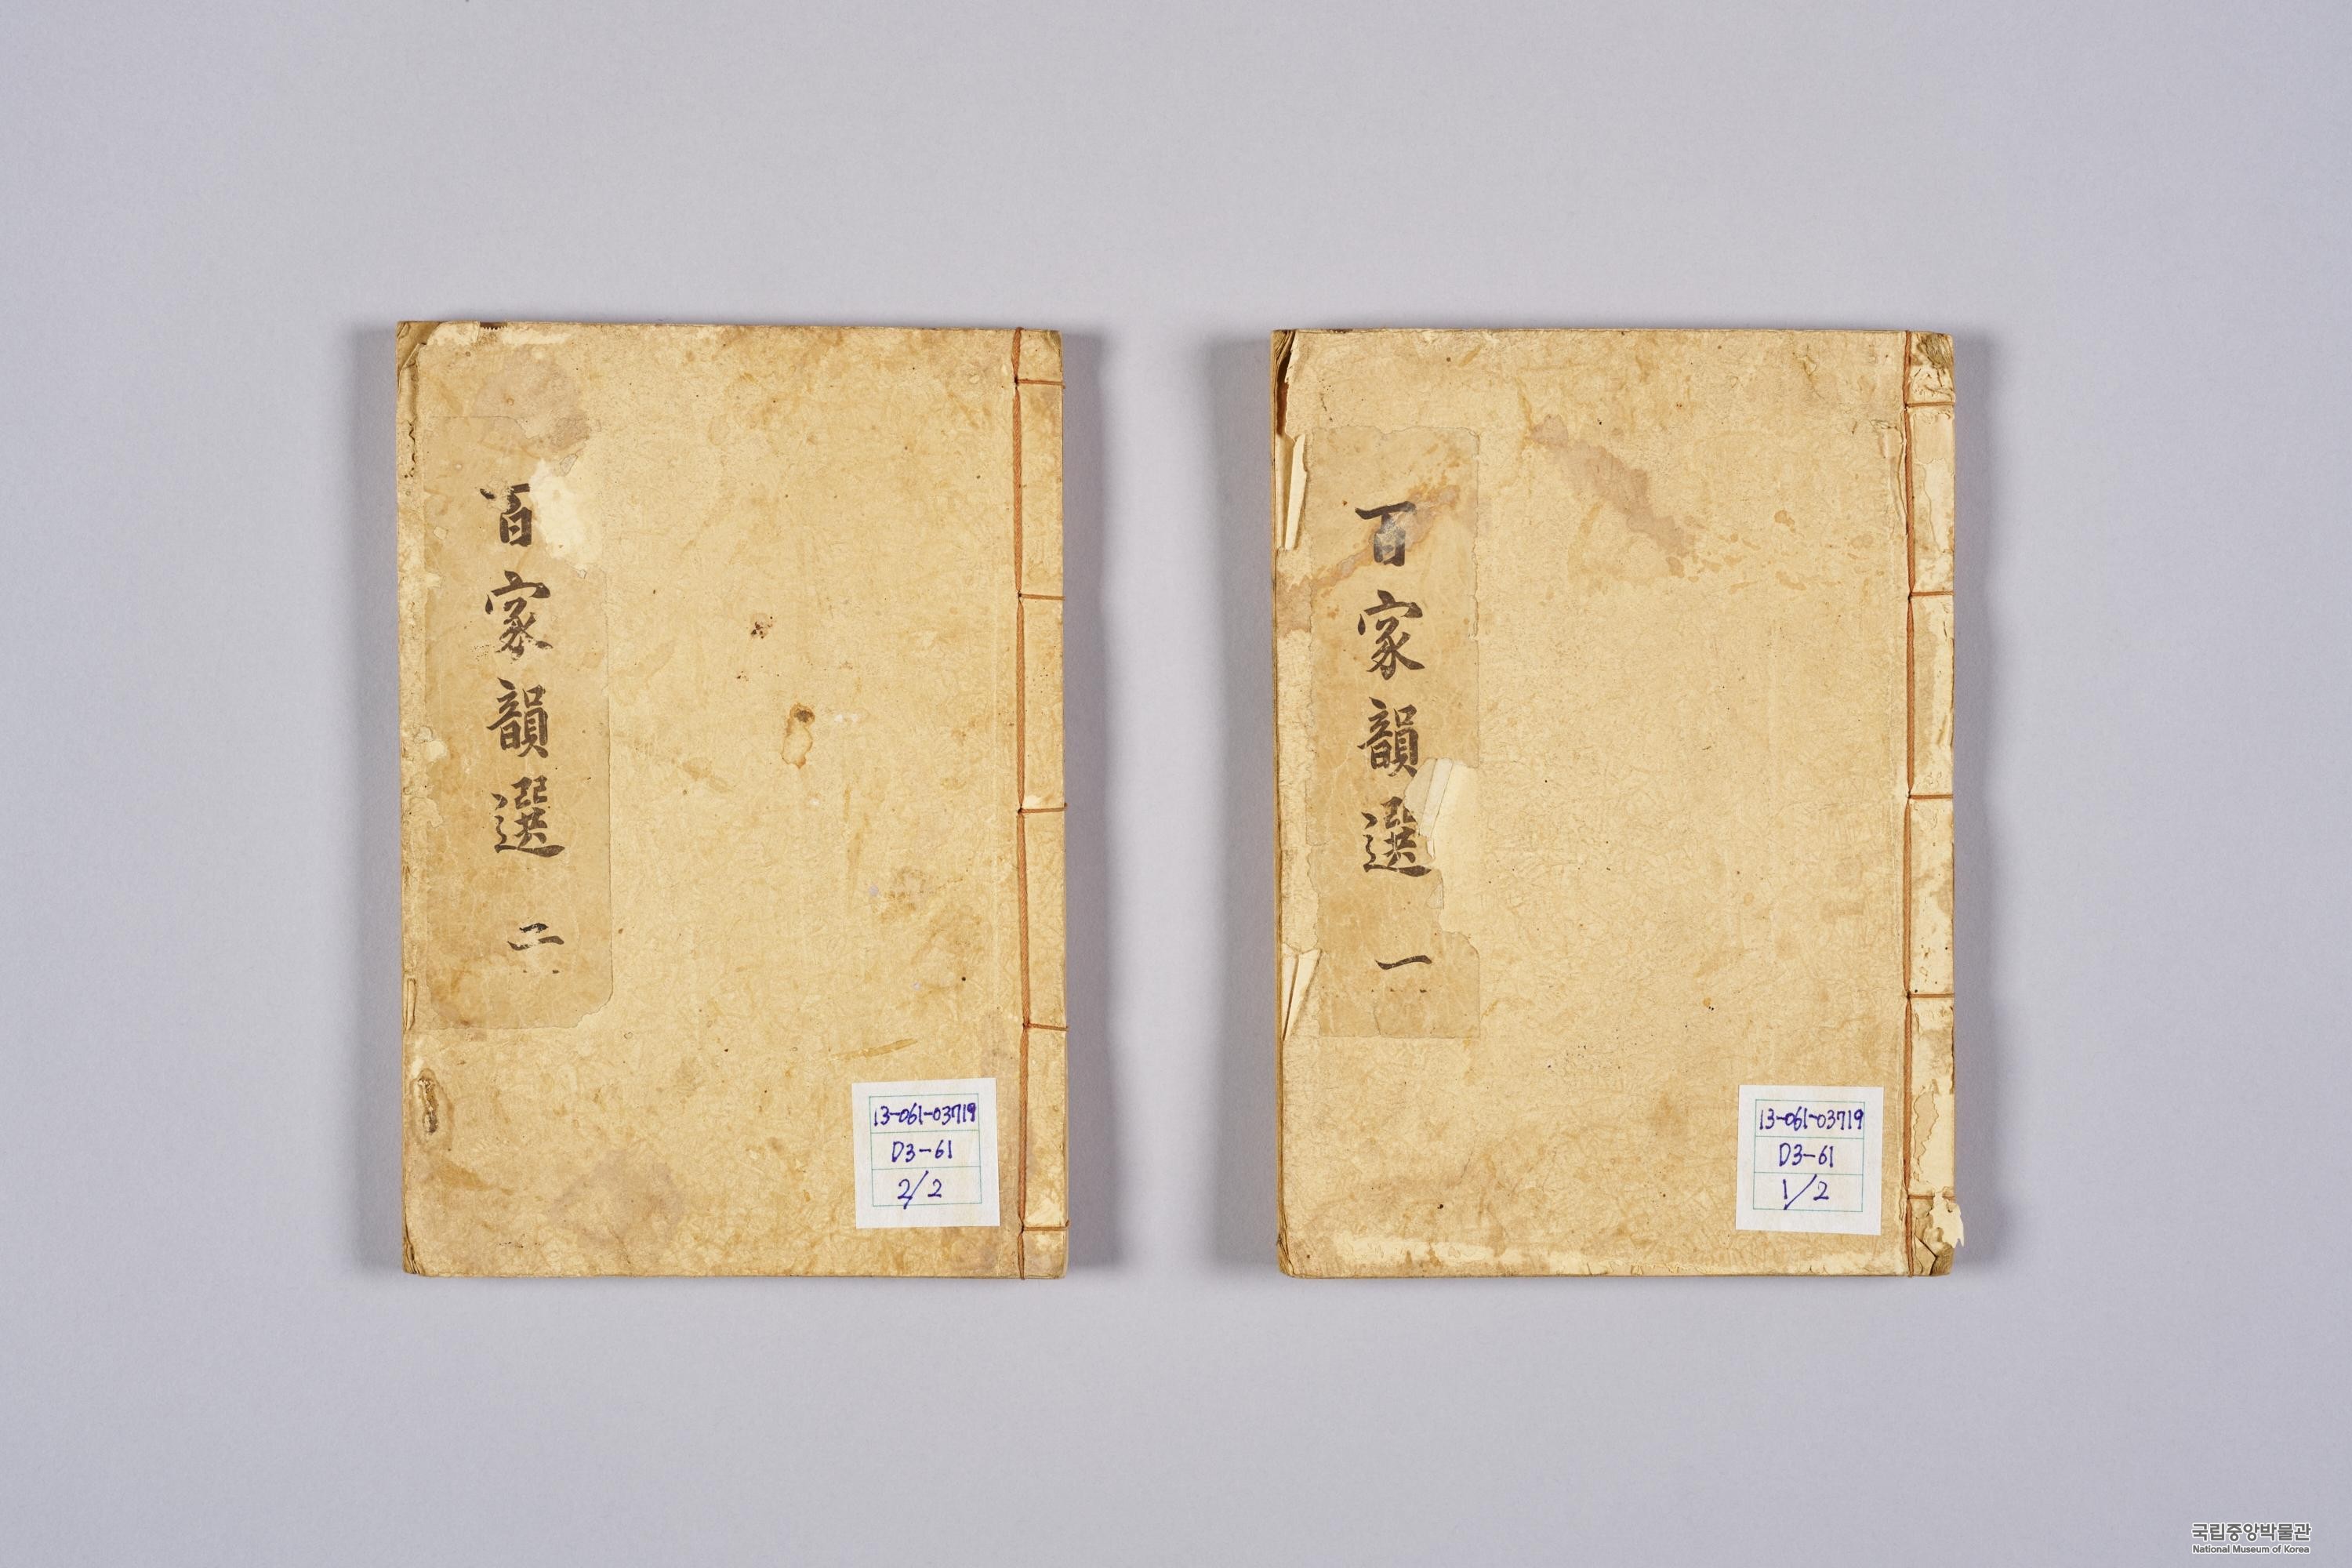 百家韻選 二
13-061-03719
D3-61
2/2
百家韻選 一
13-061-03719
D3-61
1/2
국립중앙박물관
National Museum of Korea